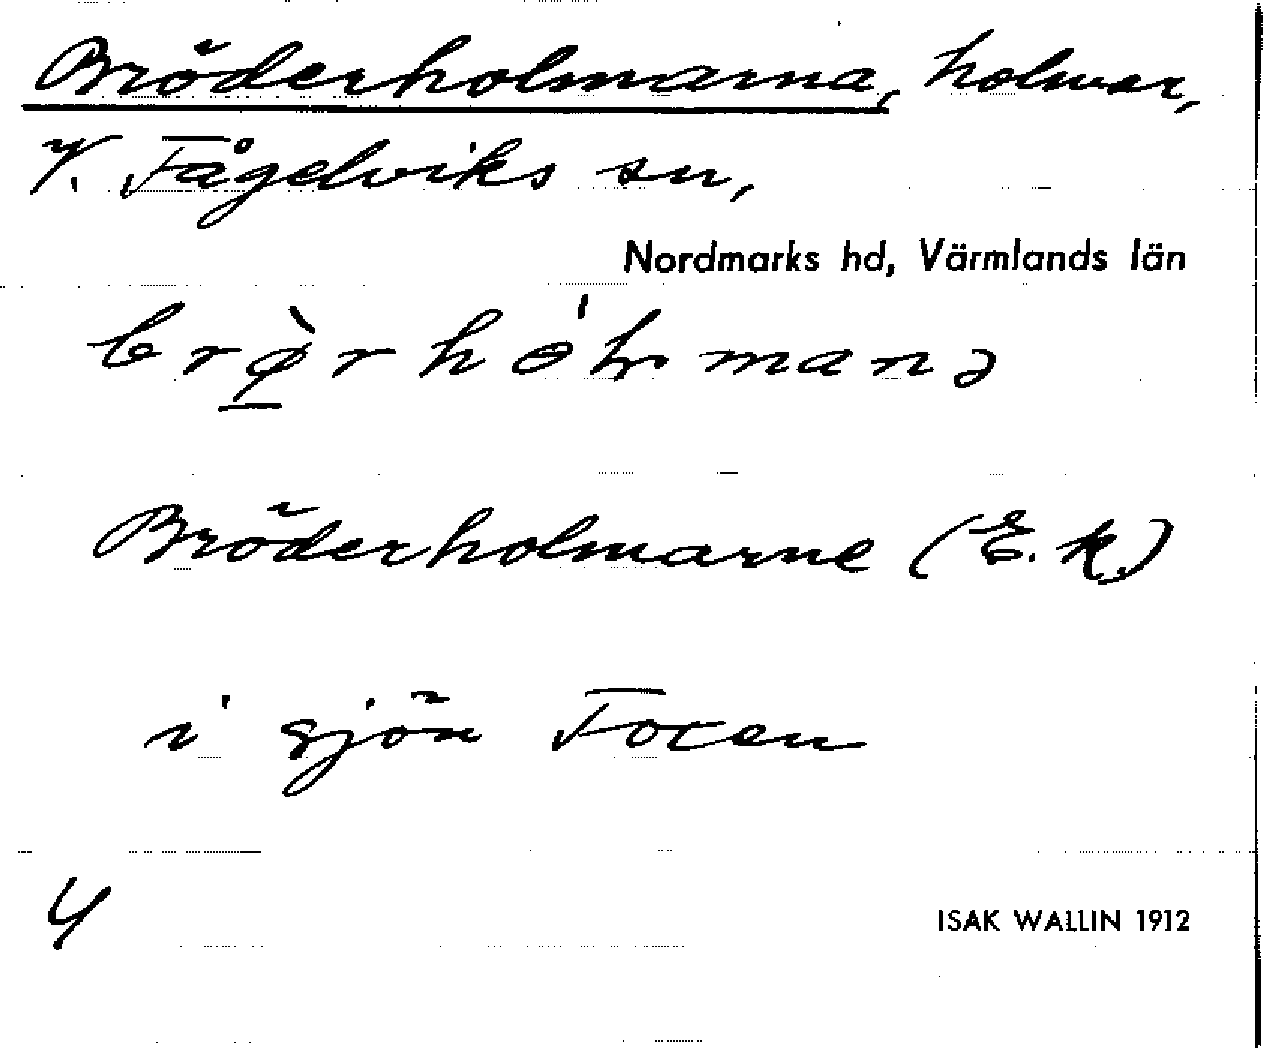 Bröderholmarna, holmar,
V. Fågelviks sn,
Nordmarks hd, Värmlands län
Bröderholmarne (E.k.)
i sjön Foxen
4
ISAK WALLIN 1912